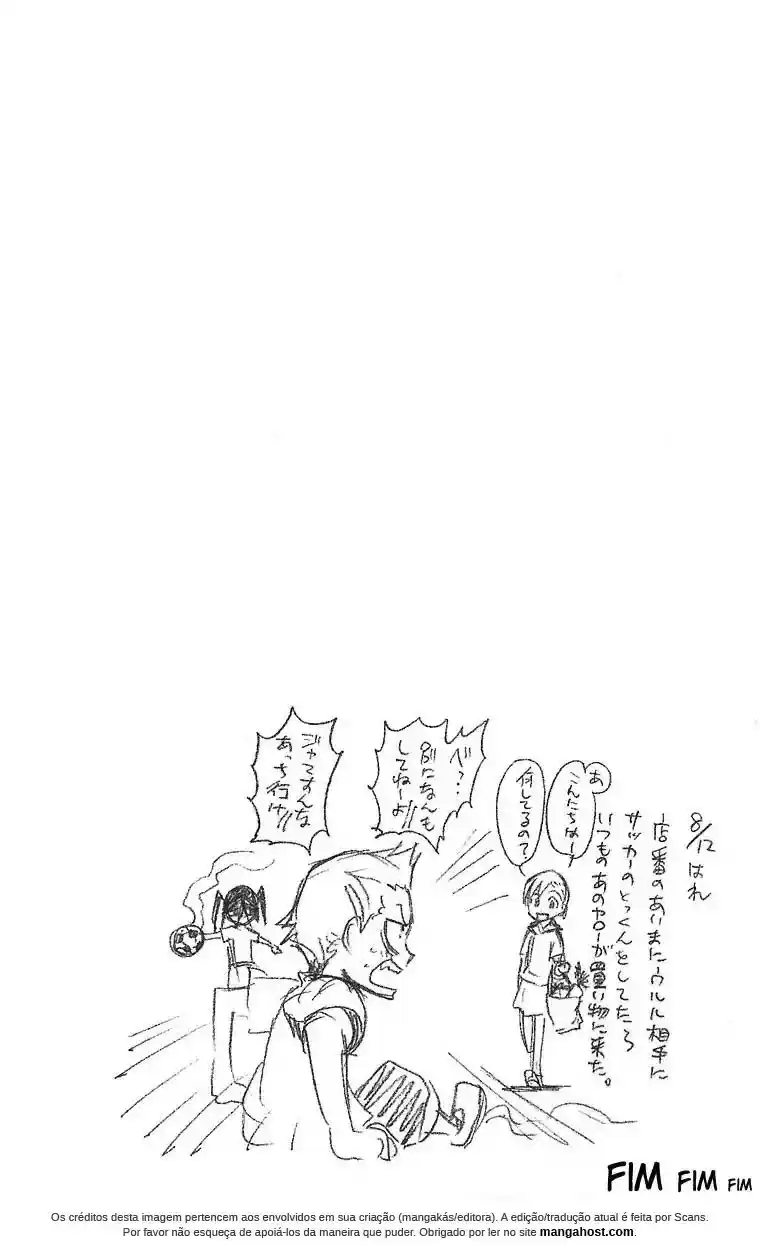 8/12 はれ
店番のあいまにウルル相手に
サッカーのとっくんをしてたら
いつものあのヤローが買い物に来た。
あ
こんにちはー
何してるの?
べっ…
別になんも
してねーよ!!
ジャマすんな
あっち行け!!
FIM FIM FIM
Os créditos desta imagem pertencem aos envolvidos em sua criação (mangakás/editora). A edição/tradução atual é feita por Scans.
Por favor não esqueça de apoiá-los da maneira que puder. Obrigado por ler no site mangahost.com.